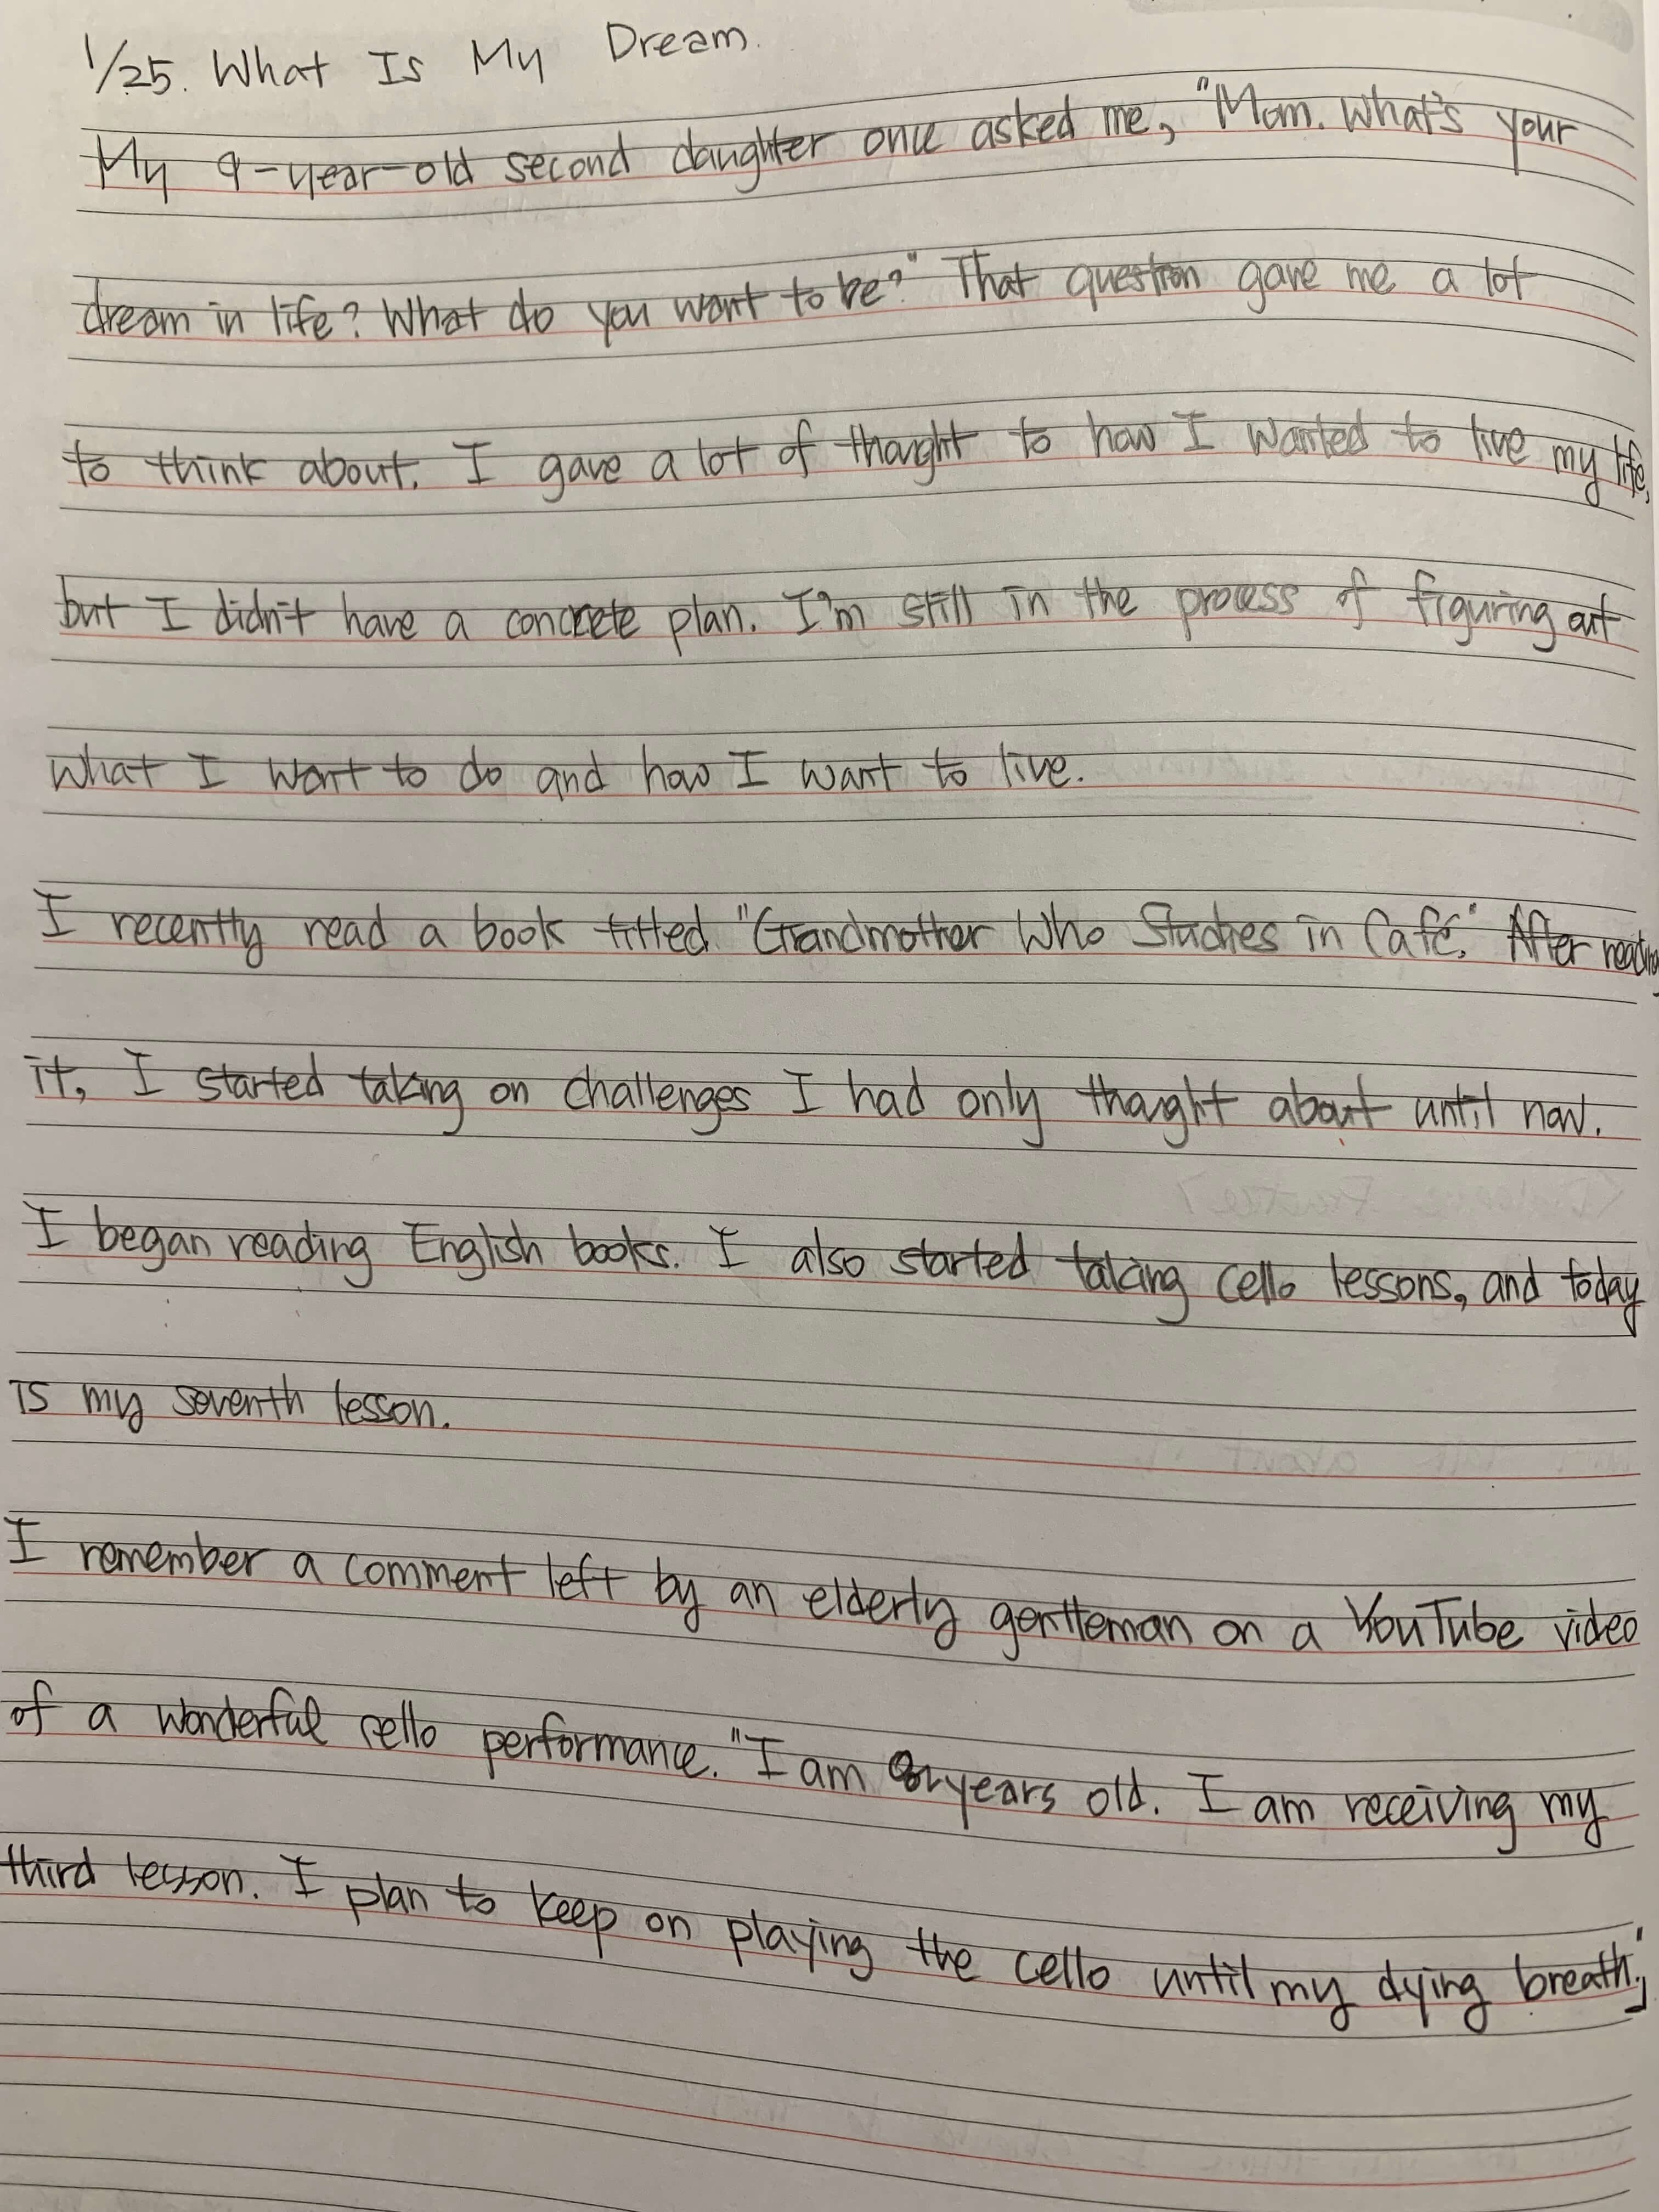 1/25. What Is My Dream.
My 9-year-old second daughter once asked me, "Mom. What's your
dream in life? What do you want to be?" That question gave me a lot
to think about. I gave a lot of thought to how I wanted to live my life,
but I didn't have a concrete plan. I'm still in the process of figuring out
what I want to do and how I want to live.
I recently read a book titled "Grandmother Who Studies in Café." After reading
it, I started taking on challenges I had only thought about until now.
I began reading English books. I also started taking cello lessons, and today
is my seventh lesson.
I remember a comment left by an elderly gentleman on a YouTube video
of a wonderful cello performance. "I am years old. I am receiving my
third lesson. I plan to keep on playing the cello until my dying breath."